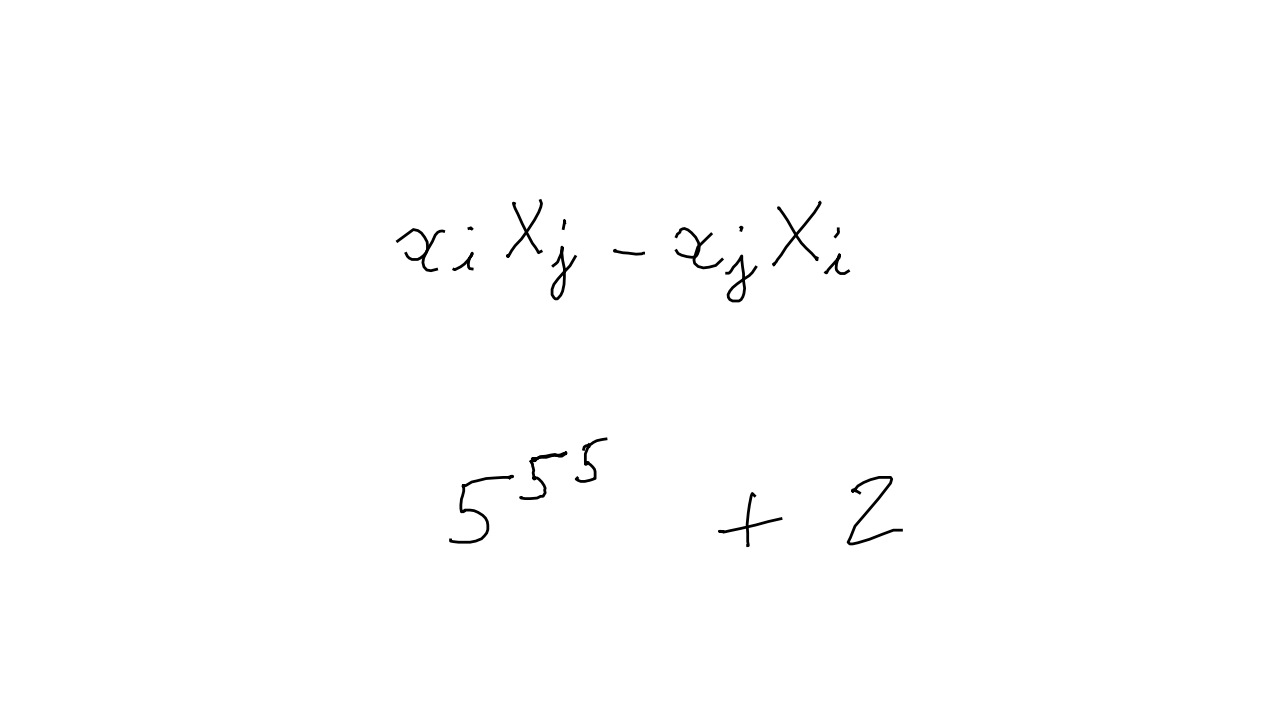 $x_i X_j - x_j X_i$
$5^{5^5} + 2$